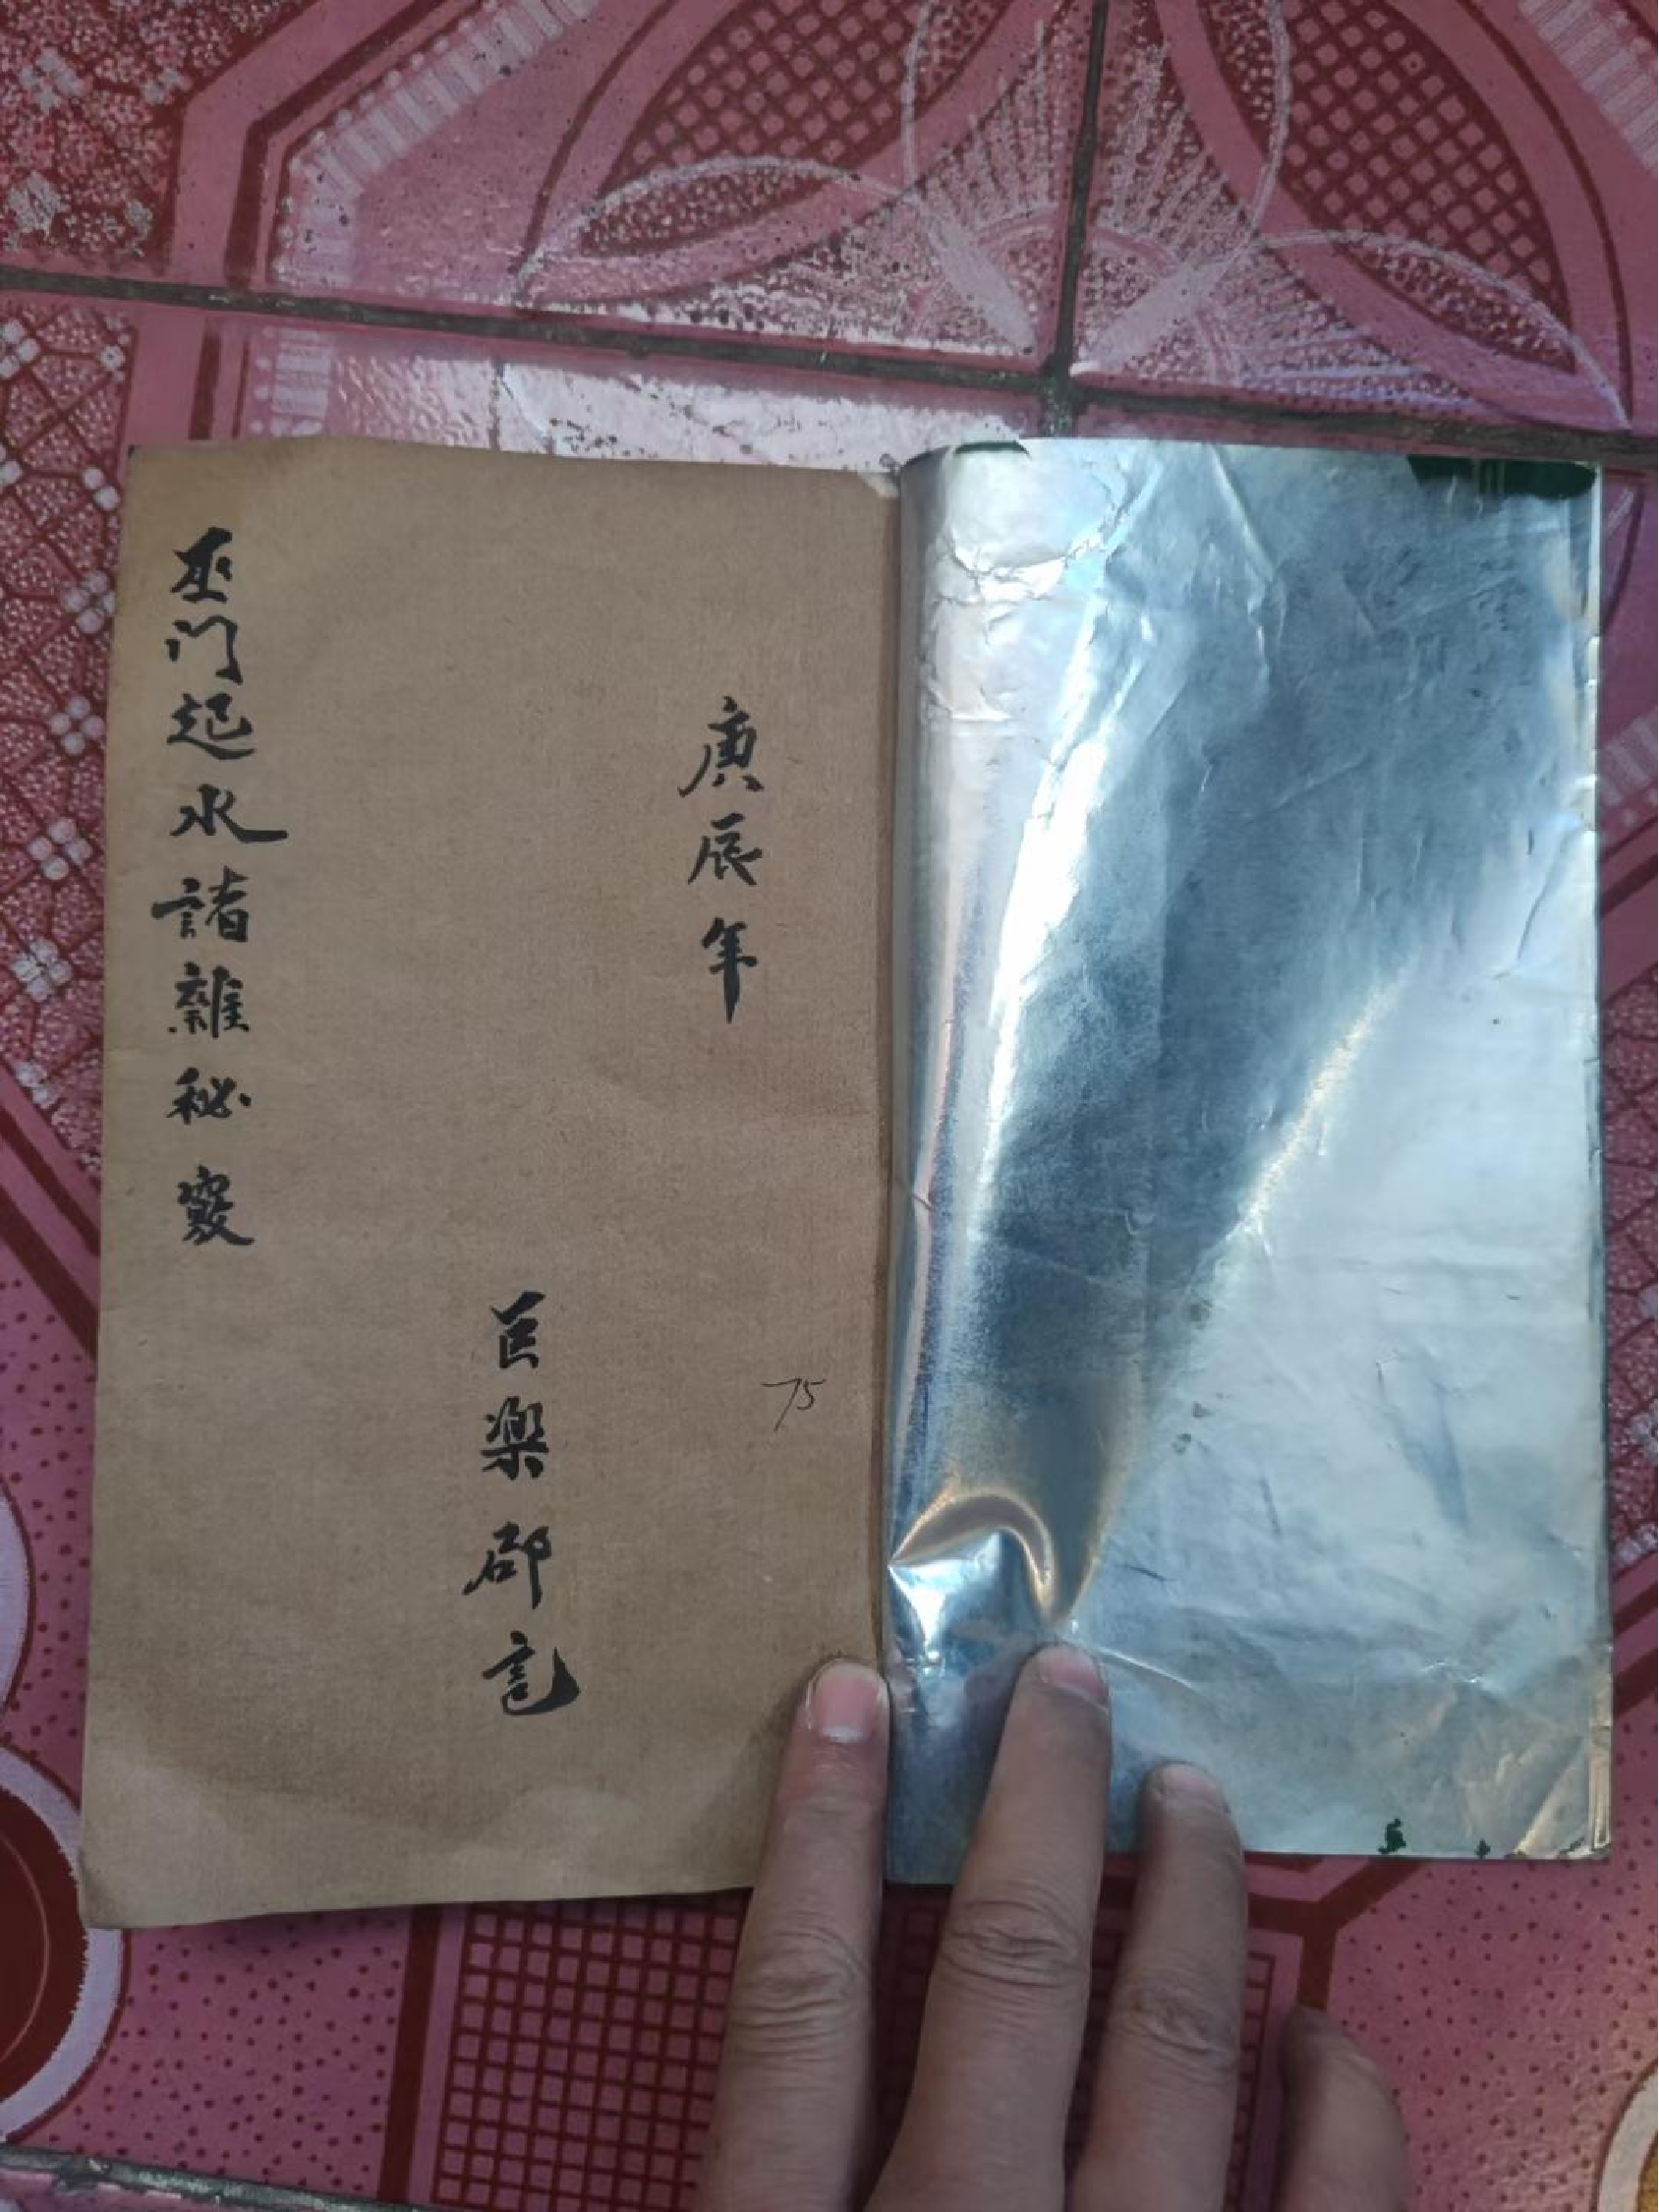 庚辰年
巨樂邵記
巫門起水諸雜秘竅
75